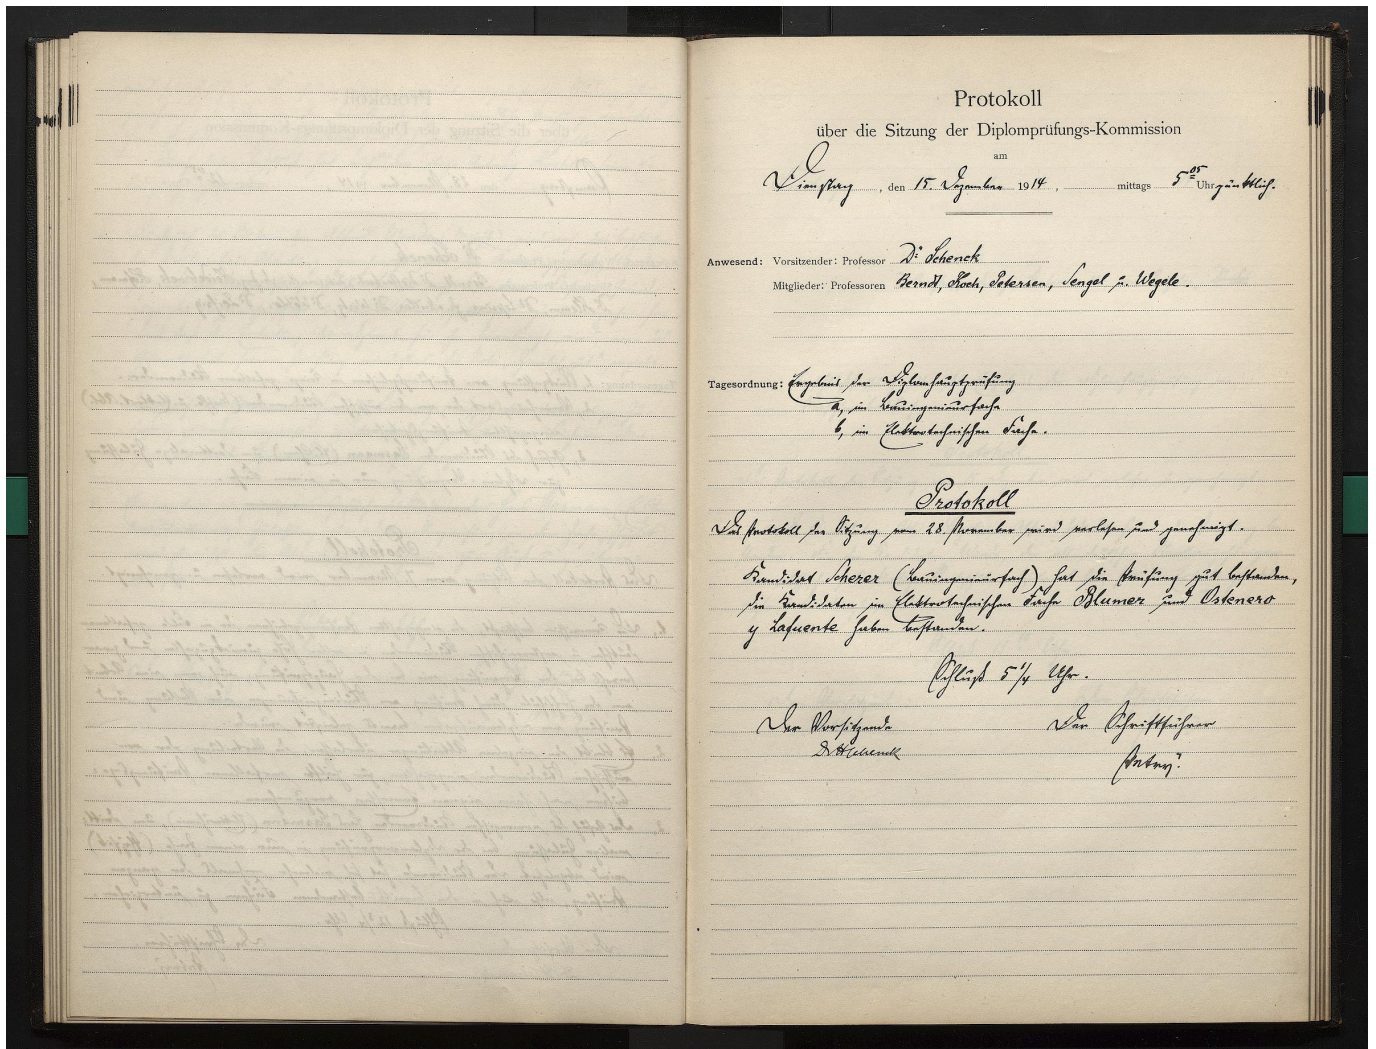 Protokoll
über die Sitzung der Diplomprüfungs-Kommission
am
Dienstag, den 15. Dezember 1914, mittags 5⁰⁵ Uhr pünktlich.
Anwesend: Vorsitzender: Professor Dr. Schenck
Mitglieder: Professoren Berndt, Koch, Petersen, Sengel u. Wegele.
Tagesordnung: Ergebnis der Diplomhauptprüfung
a, im Bauingenieurfache
b, im Elektrotechnischen Fache.
Protokoll
Das Protokoll der Sitzung vom 28. November wird verlesen und genehmigt.
Kandidat Scherer (Bauingenieurfach) hat die Prüfung gut bestanden,
die Kandidaten im Elektrotechnischen Fache Blumer und Ostenero
y Lafuente haben bestanden.
Schluß 5 1/4 Uhr.
Der Vorsitzende Der Schriftführer
Dr Schenck